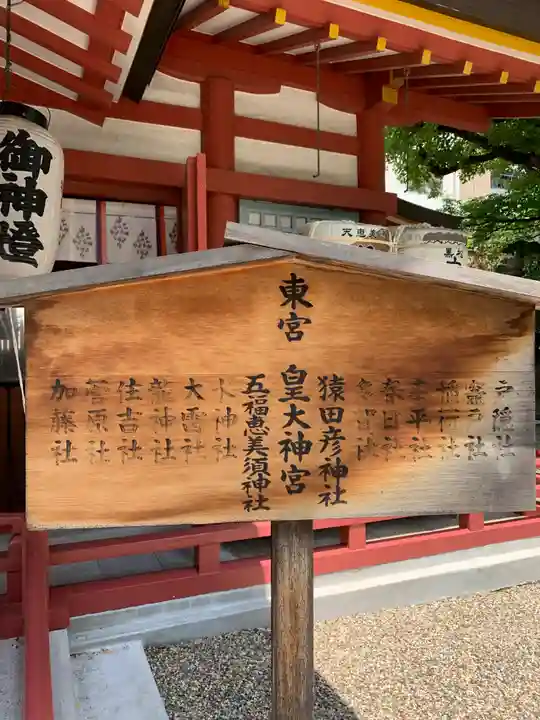 東宮 皇大神宮
猿田彦神社
春日社
稲荷社
戸隠社
五福恵美須神社
大神社
大雷社
龍神社
住吉社
菅原社
加藤社
御神燈
天恵美